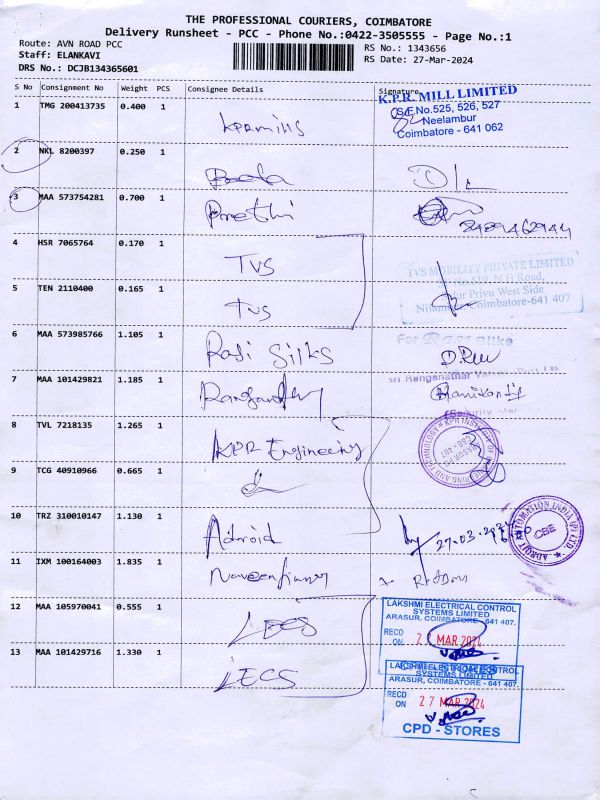 THE PROFESSIONAL COURIERS, COIMBATORE
Delivery Runsheet - PCC - Phone No.:0422-3505555 - Page No.:1
Route: AVN ROAD PCC
RS No.: 1343656
Staff: ELANKAVI
RS Date: 27-Mar-2024
DRS No.: DCJB134365601
S No Consignment No Weight PCS Consignee Details Signature
K.P.R. MILL LIMITED
1 TMG 200413735 0.400 1 kprmills
S.F.No.525, 526, 527
Neelambur
Coimbatore - 641 062
2 NKL 8200397 0.250 1
3 MAA 573754281 0.700 1 Preethi
4 HSR 7065764 0.170 1 TVS
TVS MOBILITY PRIVATE LIMITED
N.H Road,
Privu West Side
Coimbatore-641 407
5 TEN 2110400 0.165 1 TVS
6 MAA 573985766 1.105 1 Raji Silks
For Silks
7 MAA 101429821 1.185 1
Sri Ranganathar
Manikandan
8 TVL 7218135 1.265 1 KPR Engineering
9 TCG 40910966 0.665 1
10 TRZ 310010147 1.130 1 Adroid
27-03-2024
CBE
11 IXM 100164003 1.835 1
12 MAA 105970041 0.555 1 LECS
LAKSHMI ELECTRICAL CONTROL
SYSTEMS LIMITED
ARASUR, COIMBATORE - 641 407.
RECD
ON 27 MAR 2024
13 MAA 101429716 1.330 1 LECS
LAKSHMI ELECTRICAL CONTROL
SYSTEMS LIMITED
ARASUR, COIMBATORE - 641 407.
RECD
ON 27 MAR 2024
CPD - STORES